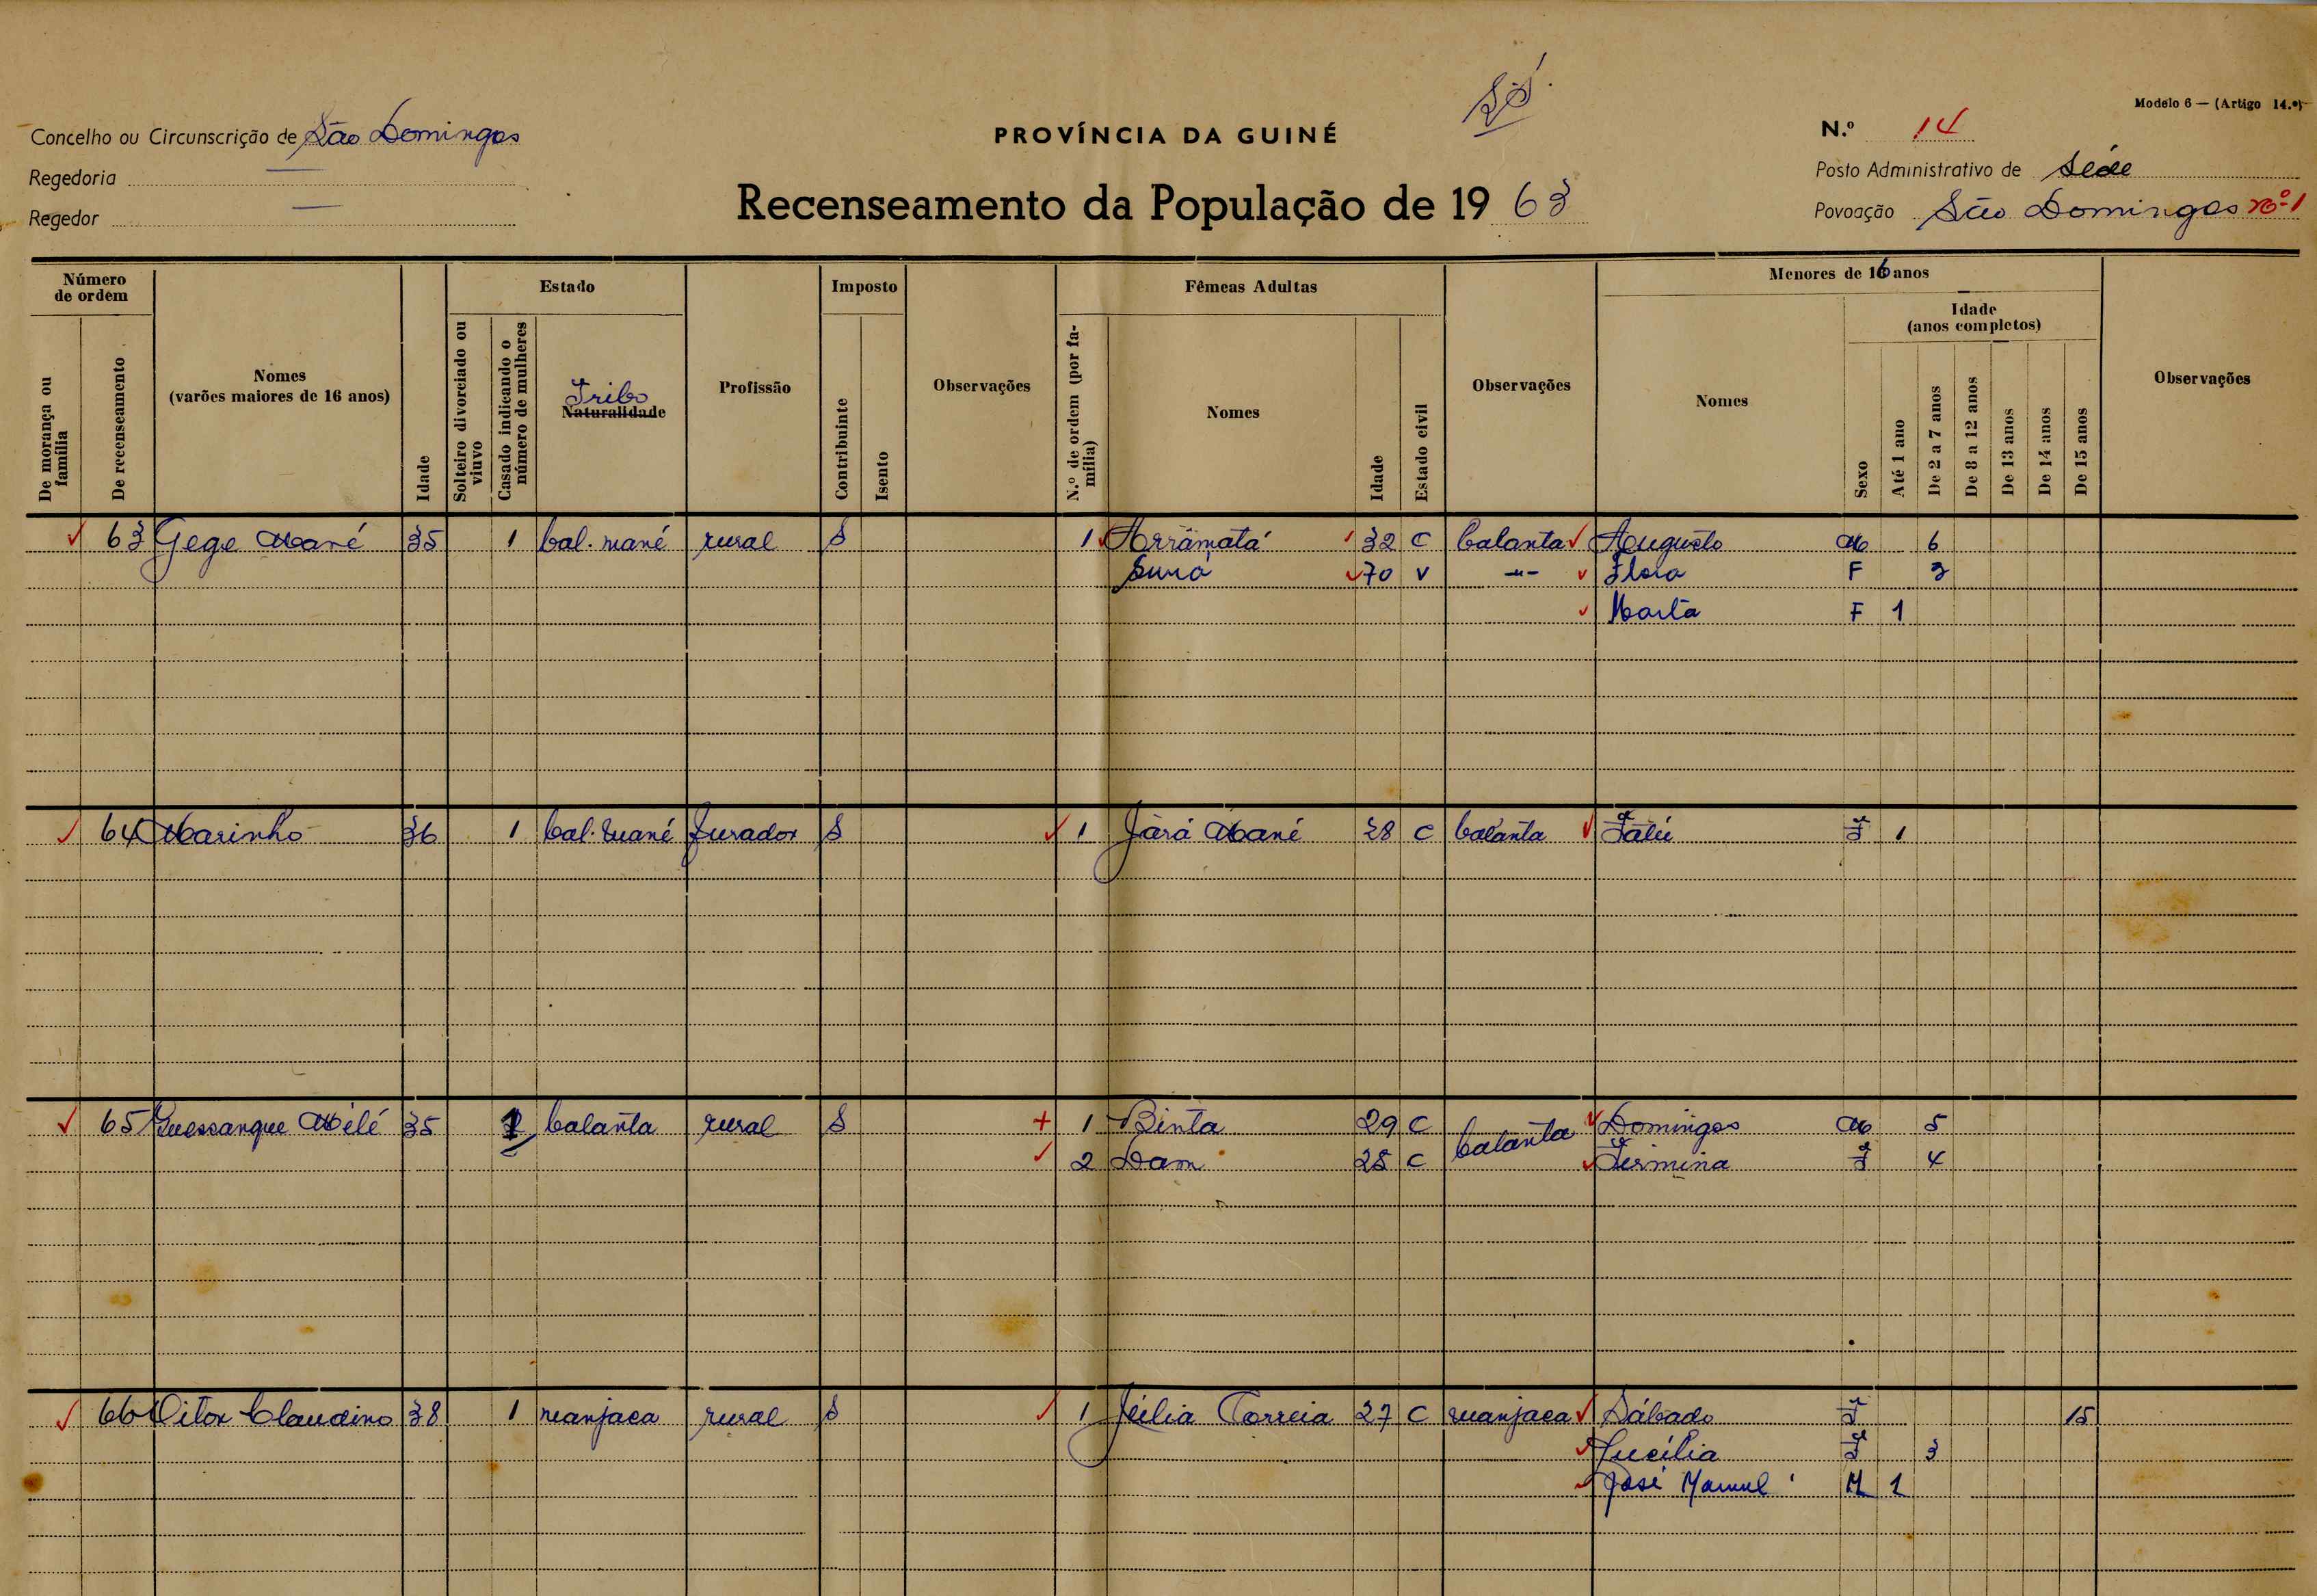 Modelo 6 — (Artigo 14.º)
Concelho ou Circunscrição de São Domingos
PROVÍNCIA DA GUINÉ
N.º 14
Regedoria —
Posto Administrativo de Séde
Regedor —
Recenseamento da População de 19 63
Povoação São Domingos nº 1
Número de ordem
Estado
Imposto
Fêmeas Adultas
Menores de 16 anos
Idade
(anos completos)
De morança ou família
De recenseamento
Nomes
(varões maiores de 16 anos)
Idade
Solteiro divorciado ou viuvo
Casado indicando o número de mulheres
Tribo
Naturalidade
Profissão
Contribuinte
Isento
Observações
N.º de ordem (por família)
Nomes
Idade
Estado civil
Observações
Nomes
Sexo
Até 1 ano
De 2 a 7 anos
De 8 a 12 anos
De 13 anos
De 14 anos
De 15 anos
Observações
63 Gege Mané 35 1 bal. mané rural S 1 Arrâmatá 32 C balanta Augusto M 6
Suná 70 V -"- Flora F 3
Marta F 1
64 Marinho 36 1 bal. mané furador S 1 Járá Mané 28 C balanta Fatú F 1
65 Guessanque Mélé 35 balanta rural S 1 Binta 29 C balanta Domingos M 5
2 Dam 28 C Firmina F 4
66 Vitor Claudino 38 1 manjaca rural S 1 Júlia Correia 27 C manjaca Sábado F 15
Lucília F 3
José Manuel M 1